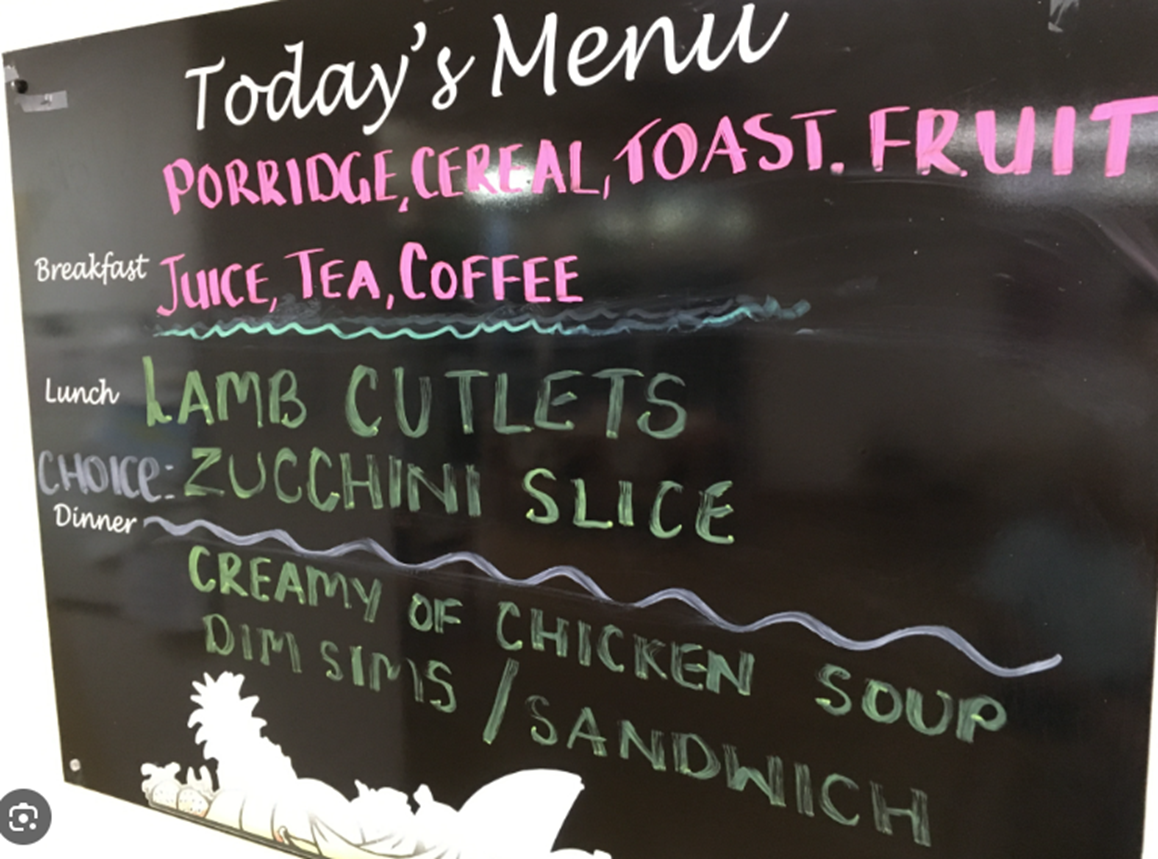 Today's Menu
PORRIDGE, CEREAL, TOAST. FRUIT
Breakfast JUICE, TEA, COFFEE
Lunch LAMB CUTLETS
CHOICE: ZUCCHINI SLICE
Dinner
CREAMY OF CHICKEN SOUP
DIM SIMS / SANDWICH